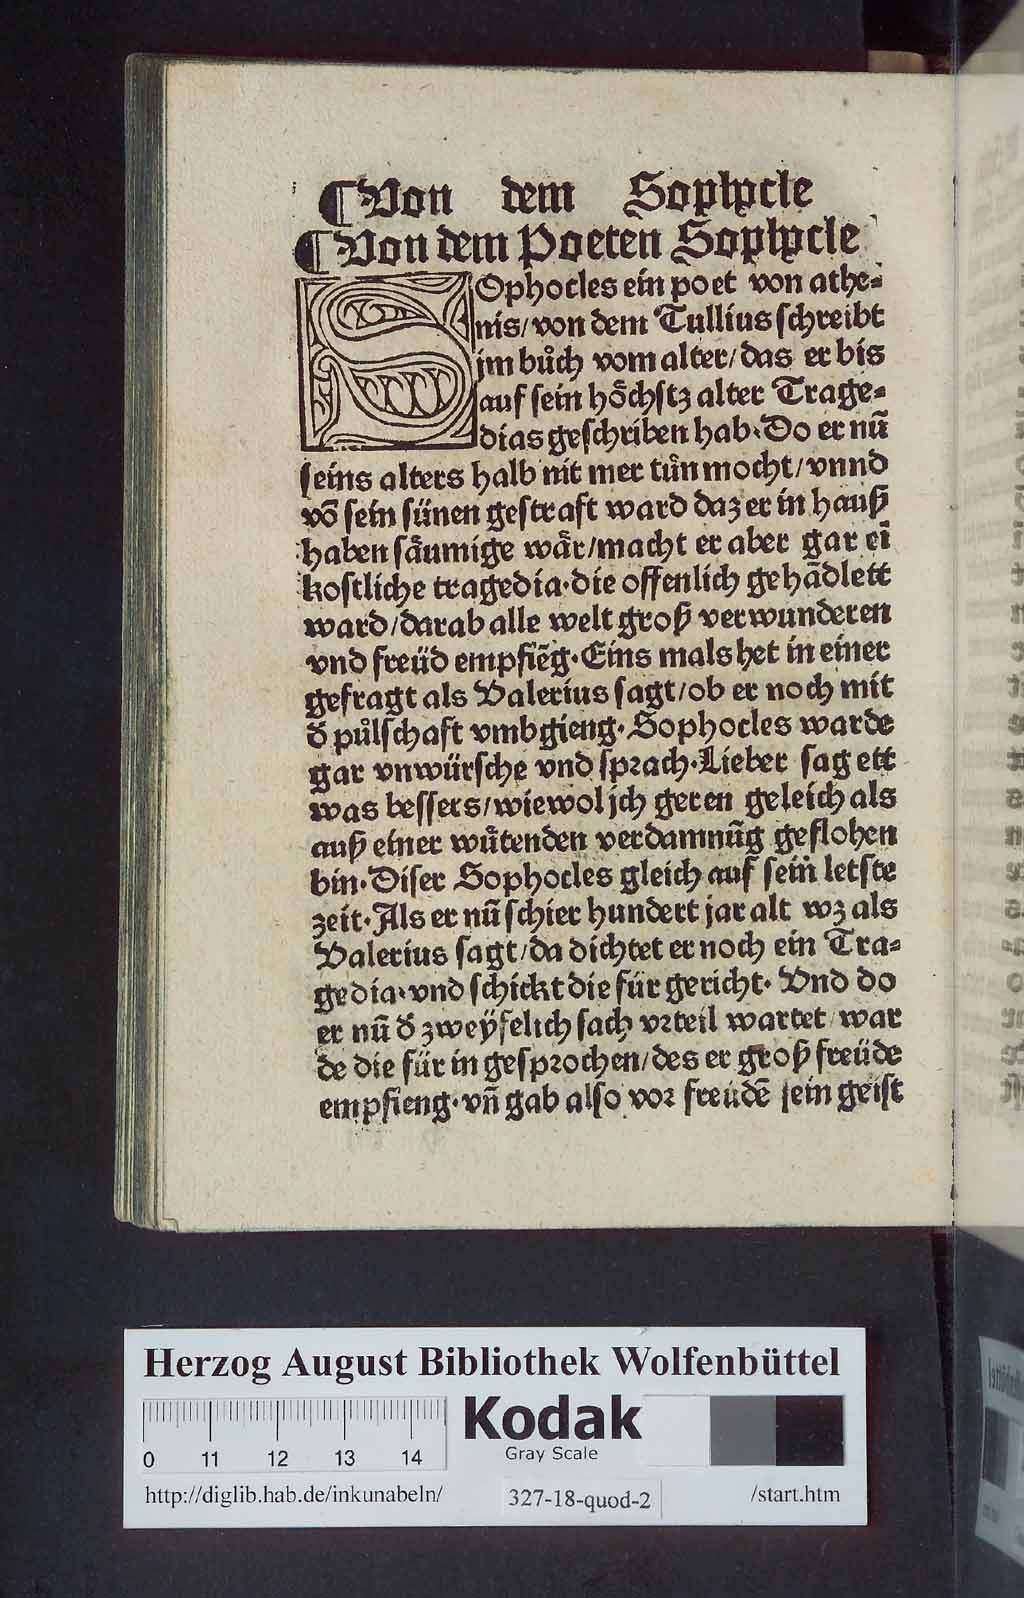 ¶Von dem Sophocle
¶Von dem Poeten Sophocle
SOphocles ein poet von athe⸗
nis/von dem Tullius schreibt
jm bůch vom alter/das er bis
auf sein hoͤchstz alter Trage⸗
dias geschriben hab·Do er nū
seins alters halb nit mer tůn mocht/vnnd
vō sein sünen gestraft ward daz er in hauß
haben saͤumige waͤr/macht er aber gar eī
kostliche tragedia·die offenlich gehādlett
ward/darab alle welt groß verwunderen
vnd freüd empfiēg·Eins mals het in einer
gefragt als Valerius sagt/ob er noch mit
d̄ půlschaft vmbgieng·Sophocles warde
gar vnwürsche vnd sprach·Lieber sag ett
was bessers/wiewol jch geren geleich als
auß einer wuͤtenden verdamnūg geflohen
bin·Diser Sophocles gleich auf sein letste
zeit·Als er nū schier hundert jar alt wz als
Valerius sagt/da dichtet er noch ein Tra⸗
gedia·vnd schickt die für gericht· Vnd do
er nū d̄ zweÿfelich sach vrteil wartet/war
de die für in gesprochen/des er groß freüde
empfieng·vn̄ gab also vor freüdē sein geist
Herzog August Bibliothek Wolfenbüttel
0 11 12 13 14
Kodak
Gray Scale
http://diglib.hab.de/inkunabeln/ 327-18-quod-2 /start.htm